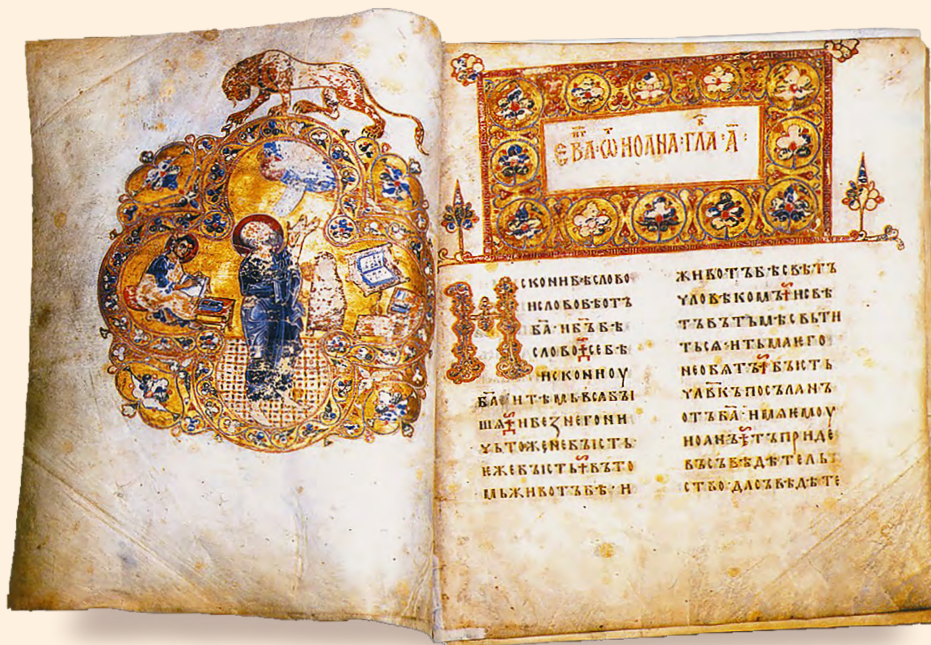 ЕВА·Ѿ ИОАНА·ГЛА·А҃·
ИСКОНИ БѢ СЛОВО
И СЛОВО БѢ ОТЪ
БА҃ И БЪ҃ БѢ
СЛОВО СЕ БѢ
ИСКОНИ ОУ
БА҃ И ТѢМЬ ВСѦ БЫ
ШѦ И БЕЗ НЕГО НИ
ЧЬТОЖЕ НЕ БЫСТЬ
ЕЖЕ БЫСТЬ ВЪ ТО
МЬ ЖИВОТЪ БѢ · И
ЖИВОТЪ БѢ СВѢТЪ
ЧЛОВѢКОМЪ И СВѢ
ТЪ ВЪ ТЬМѢ СВЬТИ
ТЬСѦ И ТЬМА ЕГО
НЕ ОБѦТЪ БЫСТЬ
ЧЛВ҃КЪ ПОСЪЛАНЪ
ОТЪ БА҃ ИМѦ ЕМОУ
ИОАНЪ ТЪ ПРИДЕ
ВЪ СЪВѢДѢТЕЛЬ
СТВО ДА СЪВѢДѢТЕ